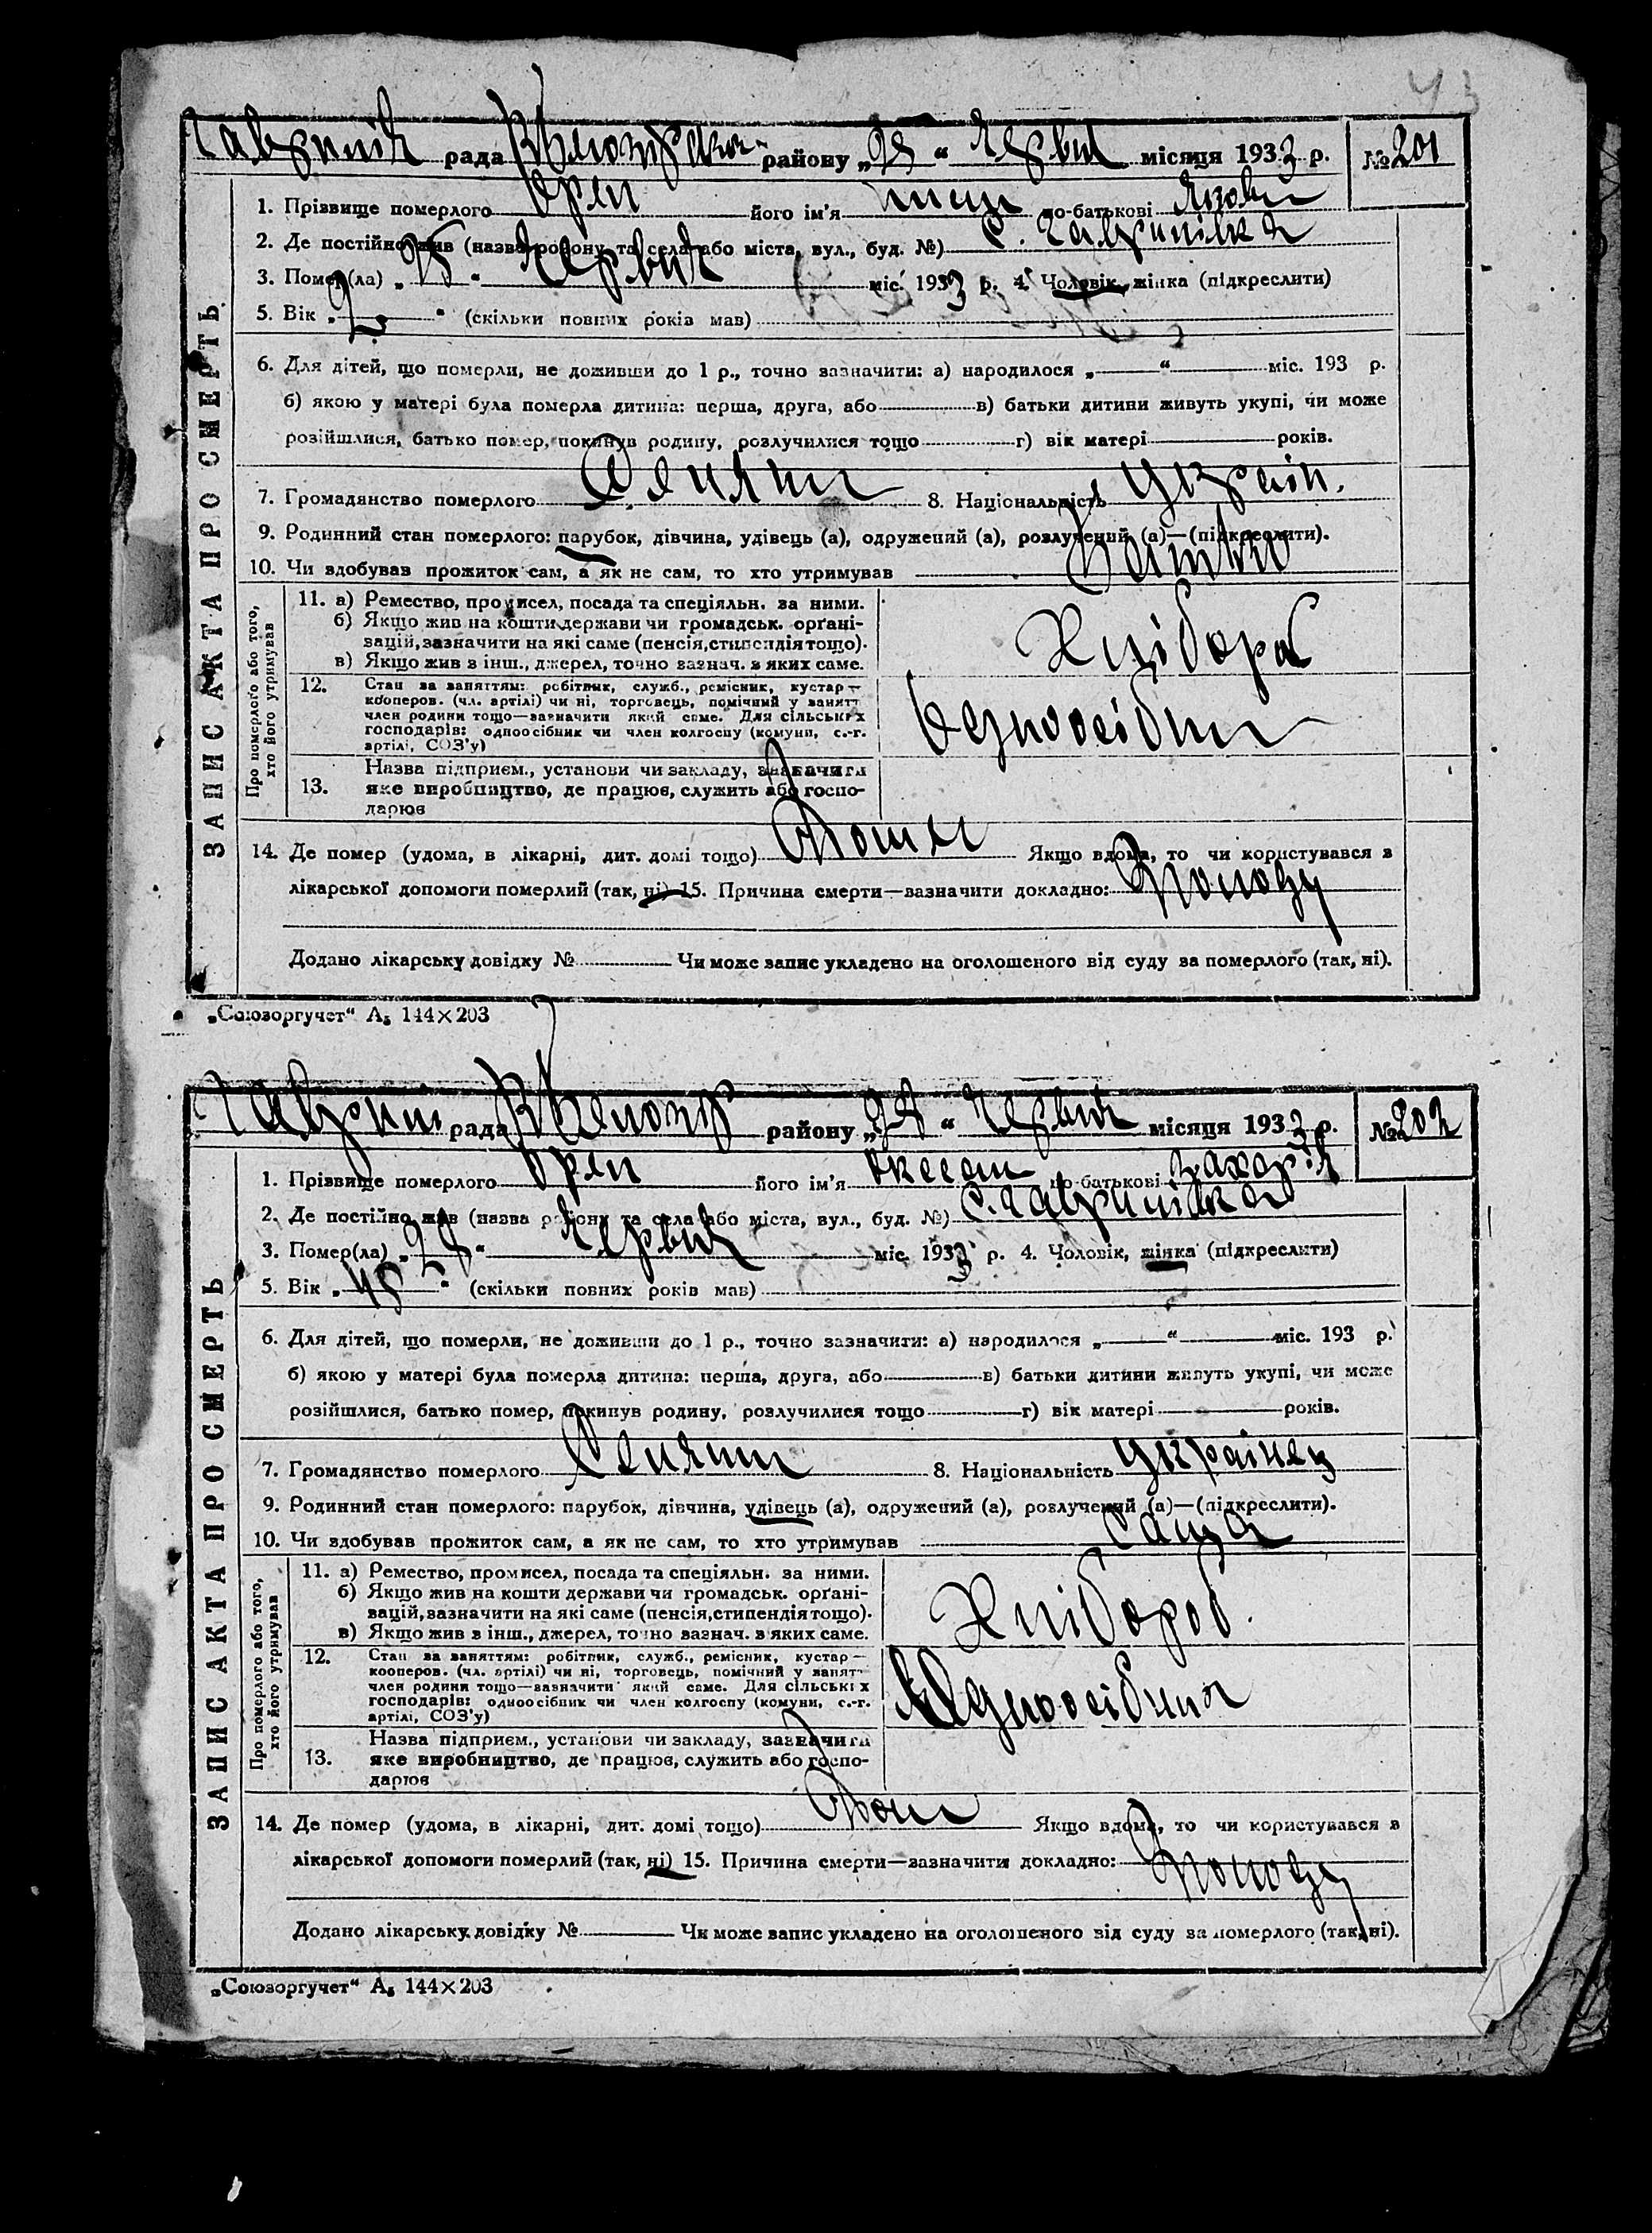 43
Гаврилів рада район у „28“ Червня місяця 1933 р. № 201
ЗАПИС АКТА ПРО СМЕРТЬ
1. Прізвище померлого Орел його ім'я по-батькові Якович
2. Де постійно жив (назва району та села або міста, вул., буд. №) С. Гаврилівка
3. Помер(ла) „28“ Червня міс. 1933 р. 4. Чоловік, жінка (підкреслити)
5. Вік „2“ (скільки повних років мав)
6. Для дітей, що померли, не доживши до 1 р., точно зазначити: а) народилося „ “ міс. 193 р.
б) якою у матері була померла дитина: перша, друга, або в) батьки дитини живуть укупі, чи може
розійшлися, батько помер, покинув родину, розлучилися тощо г) вік матері років.
7. Громадянство померлого Селянин 8. Національність Україн.
9. Родинний стан померлого: парубок, дівчина, удівець (а), одружений (а), розлучений (а)—(підкреслити).
10. Чи здобував прожиток сам, а як не сам, то хто утримував Батько
Про померлого або того, хто його утримував
11. а) Ремество, промисел, посада та спеціяльн. за ними.
б) Якщо жив на кошти держави чи громадськ. орґані-
зацій, зазначити на які саме (пенсія, стипендія тощо).
в) Якщо жив з інш., джерел, точно зазнач. з яких саме.
Хлібороб
12. Стан за заняттям: робітник, служб., ремісник, кустар—
кооперов. (чл. артілі) чи ні, торговець, помічний у занятт
член родини тощо—зазначити який саме. Для сільських
господарів: одноосібник чи член колгоспу (комуни, с.-г.
артілі, СОЗ'у)
Одноосібник
13. Назва підприєм., установи чи закладу, зазначити
яке виробництво, де працює, служить або госпо-
дарює
14. Де помер (удома, в лікарні, дит. домі тощо) Дома Якщо вдома, то чи користувався з
лікарської допомоги померлий (так, ні) 15. Причина смерти—зазначити докладно: З голоду
Додано лікарську довідку № Чи може запис укладено на оголошеного від суду за померлого (так, ні).
„Союзоргучет“ А₅ 144×203
Гаврил рада району „28“ Червня місяця 1933 р. № 202
ЗАПИС АКТА ПРО СМЕРТЬ
1. Прізвище померлого Орел його ім'я Оксана по-батькові Захарів
2. Де постійно жив (назва району та села або міста, вул., буд. №) С. Гаврилівка
3. Помер(ла) „28“ Червня міс. 1933 р. 4. Чоловік, жінка (підкреслити)
5. Вік „45“ (скільки повних років мав)
6. Для дітей, що померли, не доживши до 1 р., точно зазначити: а) народилося „ “ міс. 193 р.
б) якою у матері була померла дитина: перша, друга, або в) батьки дитини живуть укупі, чи може
розійшлися, батько помер, покинув родину, розлучилися тощо г) вік матері років.
7. Громадянство померлого Селянин 8. Національність Українец
9. Родинний стан померлого: парубок, дівчина, удівець (а), одружений (а), розлучений (а)—(підкреслити).
10. Чи здобував прожиток сам, а як не сам, то хто утримував Сама
Про померлого або того, хто його утримував
11. а) Ремество, промисел, посада та спеціяльн. за ними.
б) Якщо жив на кошти держави чи громадськ. орґані-
зацій, зазначити на які саме (пенсія, стипендія тощо).
в) Якщо жив з інш., джерел, точно зазнач. з яких саме.
Хлібороб.
12. Стан за заняттям: робітник, служб., ремісник, кустар—
кооперов. (чл. артілі) чи ні, торговець, помічний у занятт
член родини тощо—зазначити який саме. Для сільських
господарів: одноосібник чи член колгоспу (комуни, с.-г.
артілі, СОЗ'у)
Одноосібниця
13. Назва підприєм., установи чи закладу, зазначити
яке виробництво, де працює, служить або госпо-
дарює
14. Де помер (удома, в лікарні, дит. домі тощо) Дома Якщо вдома, то чи користувався з
лікарської допомоги померлий (так, ні) 15. Причина смерти—зазначити докладно: З голоду
Додано лікарську довідку № Чи може запис укладено на оголошеного від суду за померлого (так, ні).
„Союзоргучет“ А₅ 144×203